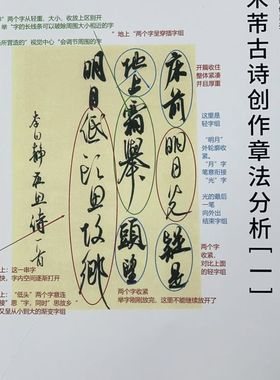 米芾古诗创作章法分析[一]
”两个字从轻重、大小、收放上区别开
”字的长线条可以破除周围大小相近的字
"地上"两个字呈穿插字组
所营造的"视觉中心"会调节周围的字
床前明月光疑是
地上霜舉頭望
明月低頭思故鄉
李白靜夜思詩一首
开篇收住
整体紧凑
并且厚重
这里是
轻字组
"明月"
外轮廓收
紧。"月"字
笔意衔接
"光"字
光的最后
一笔
向外出
结束字组
两个字
收紧,
对比上面
的轻字组
上:这一串字
快,字内空间逐渐打开
上:"低头"两个字意连
接"思"字,同时"思故乡"
又呈从小到大的渐变字组
两个字收紧
举字刚刚放完,这里不能继续放开了